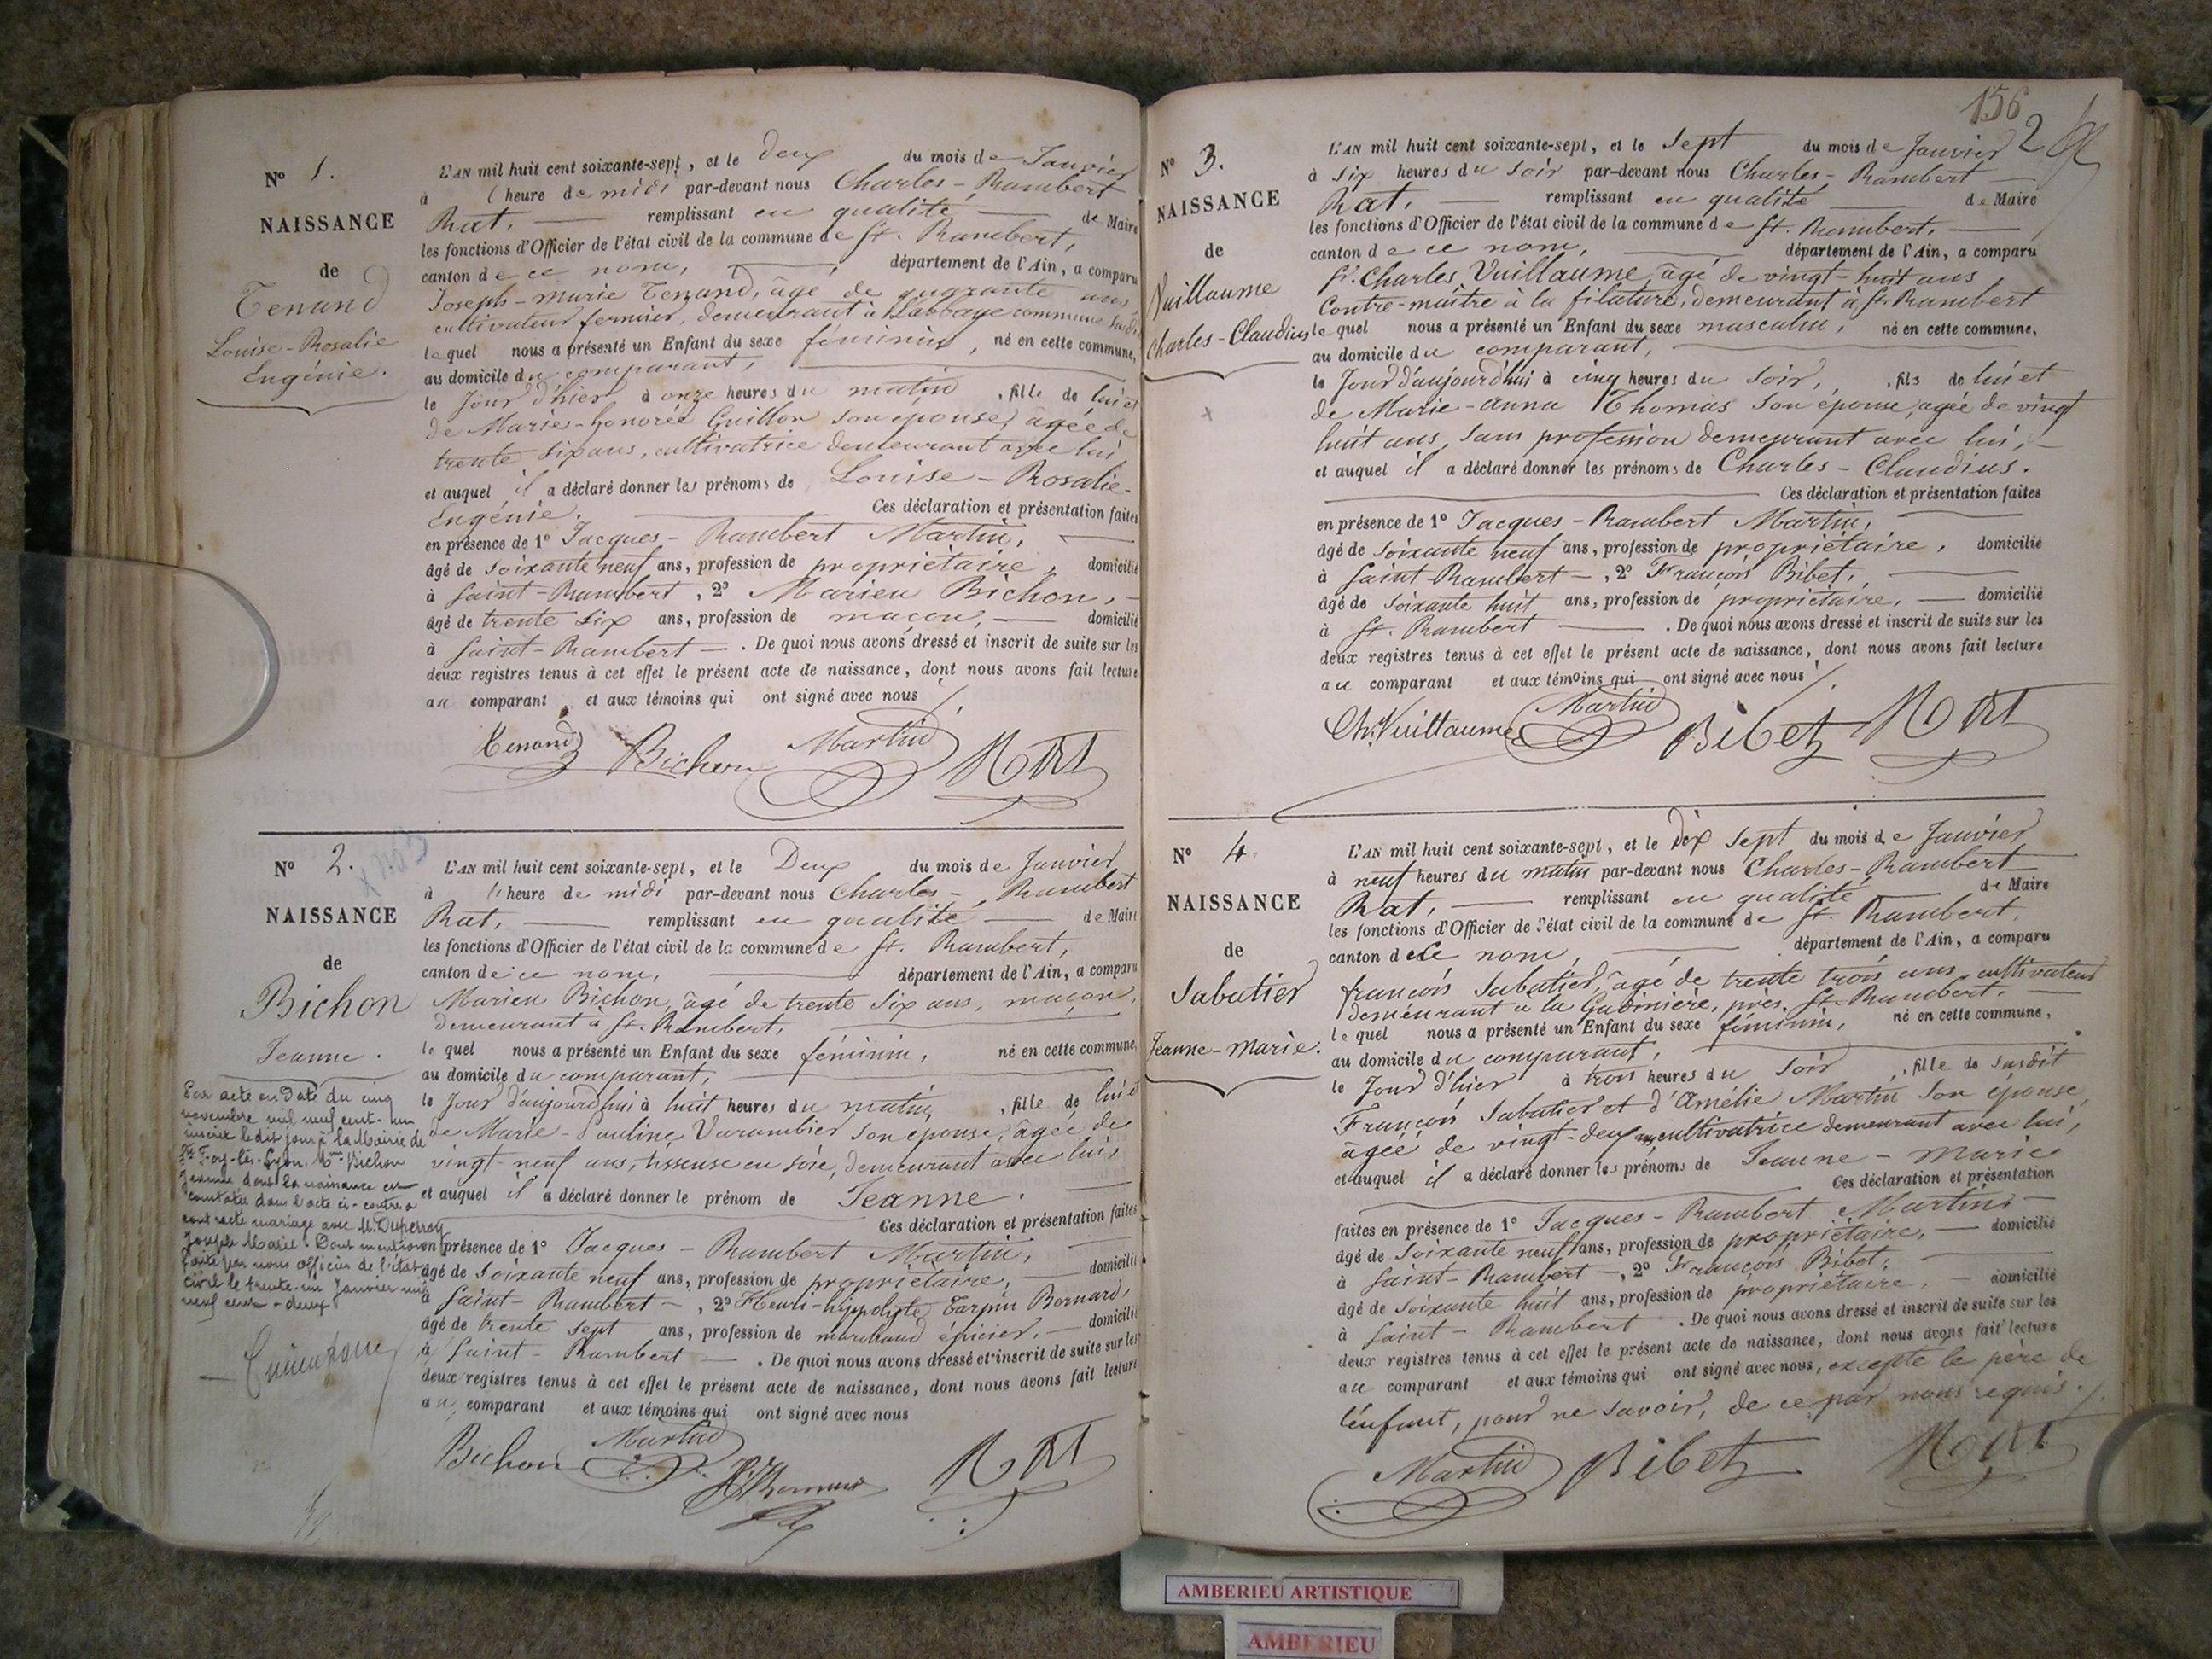 N° 1.
NAISSANCE
de
Tenand
Louise-Rosalie
Eugénie.
L'AN mil huit cent soixante-sept, et le Deux du mois de Janvier
à l heure de midi par-devant nous Charles-Rambert
Rat, remplissant en qualité de Maire
les fonctions d'Officier de l'état civil de la commune de St. Rambert,
canton de ce nom, département de l'Ain, a comparu
Joseph-Marie Tenand, âgé de quarante ans
cultivateur fermier, demeurant à l'abbaye commune susdite
lequel nous a présenté un Enfant du sexe féminin, né en cette commune,
au domicile du comparant,
le Jour d'hier à onze heures du matin, fille de lui et
de Marie-honorée Guillon son épouse, âgée de
trente six ans, cultivatrice demeurant avec lui,
et auquel il a déclaré donner les prénoms de Louise-Rosalie-
Eugénie. Ces déclaration et présentation faites
en présence de 1° Jacques-Rambert Martin,
âgé de soixante neuf ans, profession de propriétaire, domicilié
à Saint-Rambert, 2° Marieu Bichon,
âgé de trente six ans, profession de maçon, domicilié
à Saint-Rambert. De quoi nous avons dressé et inscrit de suite sur les
deux registres tenus à cet effet le présent acte de naissance, dont nous avons fait lecture
au comparant et aux témoins qui ont signé avec nous
Tenand Bichon Martin Rat
N° 2.
NAISSANCE
de
Bichon
Jeanne.
Par acte en date du cinq
novembre mil neuf cent un
inscrit le dit jour à la Mairie de
Ste Foy-lès-Lyon, Mme Bichon
Jeanne dont la naissance est
constatée dans l'acte ci-contre a
contracté mariage avec M. Duperray
Joseph Marie. Dont mention
faite par nous officier de l'état
civil le trente-un Janvier mil
neuf cent-deux
L'AN mil huit cent soixante-sept, et le Deux du mois de Janvier
à l heure de midi par-devant nous Charles-Rambert
Rat, remplissant en qualité de Maire
les fonctions d'Officier de l'état civil de la commune de St. Rambert,
canton de ce nom, département de l'Ain, a comparu
Marieu Bichon, âgé de trente six ans, maçon,
demeurant à St. Rambert,
lequel nous a présenté un Enfant du sexe féminin, né en cette commune,
au domicile du comparant,
le Jour d'aujourd'hui à huit heures du matin, fille de lui et
de Marie-Pauline Varambier son épouse, âgée de
vingt-neuf ans, tisseuse en soie, demeurant avec lui,
et auquel il a déclaré donner le prénom de Jeanne.
Ces déclaration et présentation faites
en présence de 1° Jacques-Rambert Martin,
âgé de soixante neuf ans, profession de propriétaire, domicilié
à Saint-Rambert, 2° Henri-hippolyte Tarpin Bernard,
âgé de trente sept ans, profession de marchand épicier, domicilié
à Saint-Rambert. De quoi nous avons dressé et inscrit de suite sur les
deux registres tenus à cet effet le présent acte de naissance, dont nous avons fait lecture
au comparant et aux témoins qui ont signé avec nous
Bichon Martin Rat
156
2
N° 3.
NAISSANCE
de
Vuillaume
Charles-Claudius
L'AN mil huit cent soixante-sept, et le Sept du mois de Janvier
à Six heures du soir par-devant nous Charles-Rambert
Rat, remplissant en qualité de Maire
les fonctions d'Officier de l'état civil de la commune de St. Rambert,
canton de ce nom, département de l'Ain, a comparu
Sr. Charles Vuillaume, âgé de vingt-huit ans
Contre-maître à la filature, demeurant à St. Rambert
lequel nous a présenté un Enfant du sexe masculin, né en cette commune,
au domicile du comparant,
le Jour d'aujourd'hui à cinq heures du Soir, fils de lui et
de Marie-anna Thomas son épouse, âgée de vingt
huit ans, sans profession demeurant avec lui,
et auquel il a déclaré donner les prénoms de Charles-Claudius.
Ces déclaration et présentation faites
en présence de 1° Jacques-Rambert Martin,
âgé de soixante neuf ans, profession de propriétaire, domicilié
à Saint-Rambert, 2° François Bibet,
âgé de soixante huit ans, profession de propriétaire, domicilié
à St. Rambert. De quoi nous avons dressé et inscrit de suite sur les
deux registres tenus à cet effet le présent acte de naissance, dont nous avons fait lecture
au comparant et aux témoins qui ont signé avec nous
Ch. Vuillaume Martin Bibet Rat
N° 4.
NAISSANCE
de
Sabatier
Jeanne-Marie.
L'AN mil huit cent soixante-sept, et le dix sept du mois de Janvier
à neuf heures du matin par-devant nous Charles-Rambert
Rat, remplissant en qualité de Maire
les fonctions d'Officier de l'état civil de la commune de St. Rambert,
canton de ce nom, département de l'Ain, a comparu
françois Sabatier, âgé de trente trois ans, cultivateur
demeurant à la Gabinière, près St. Rambert.
lequel nous a présenté un Enfant du sexe féminin, né en cette commune,
au domicile du comparant,
le Jour d'hier à trois heures du Soir, fille de susdit
François Sabatier et d'Amélie Martin son épouse,
âgée de vingt-deux ans, cultivatrice demeurant avec lui,
et auquel il a déclaré donner les prénoms de Jeanne-Marie
Ces déclaration et présentation
faites en présence de 1° Jacques-Rambert Martin
âgé de soixante neuf ans, profession de propriétaire, domicilié
à Saint-Rambert, 2° François Bibet,
âgé de soixante huit ans, profession de propriétaire, domicilié
à Saint-Rambert. De quoi nous avons dressé et inscrit de suite sur les
deux registres tenus à cet effet le présent acte de naissance, dont nous avons fait lecture
au comparant et aux témoins qui ont signé avec nous, excepté le père de
l'enfant, pour ne savoir, de ce par nous requis.
Martin Bibet Rat
AMBERIEU ARTISTIQUE
AMBERIEU